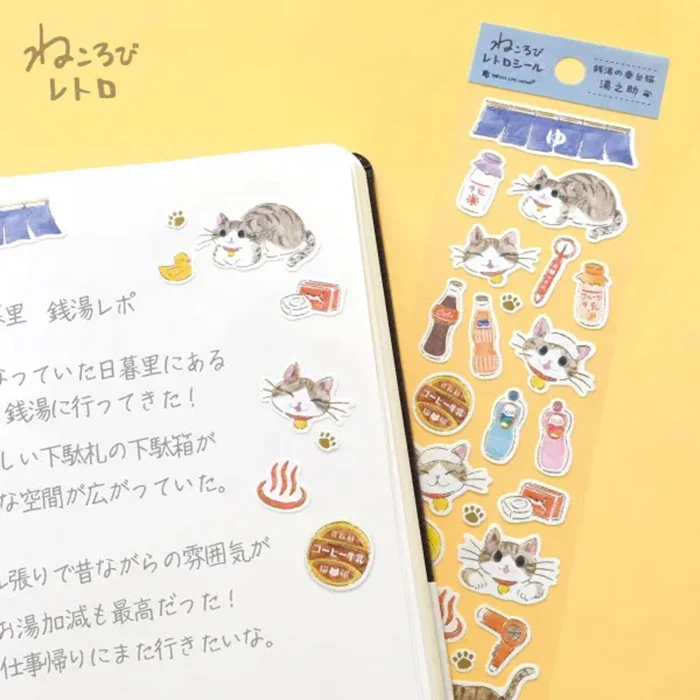 ねころび
レトロ
ねころび
レトロシール
銭湯の番台猫
湯之助
ゆ
牛乳
フルーツ
牛乳
コーヒー牛乳
里 銭湯レポ
なっていた日暮里にある
銭湯に行ってきた！
しい下駄札の下駄箱が
な空間が広がっていた。
ル張りで昔ながらの雰囲気が
お湯加減も最高だった！
仕事帰りにまた行きたいな。
コーヒー牛乳